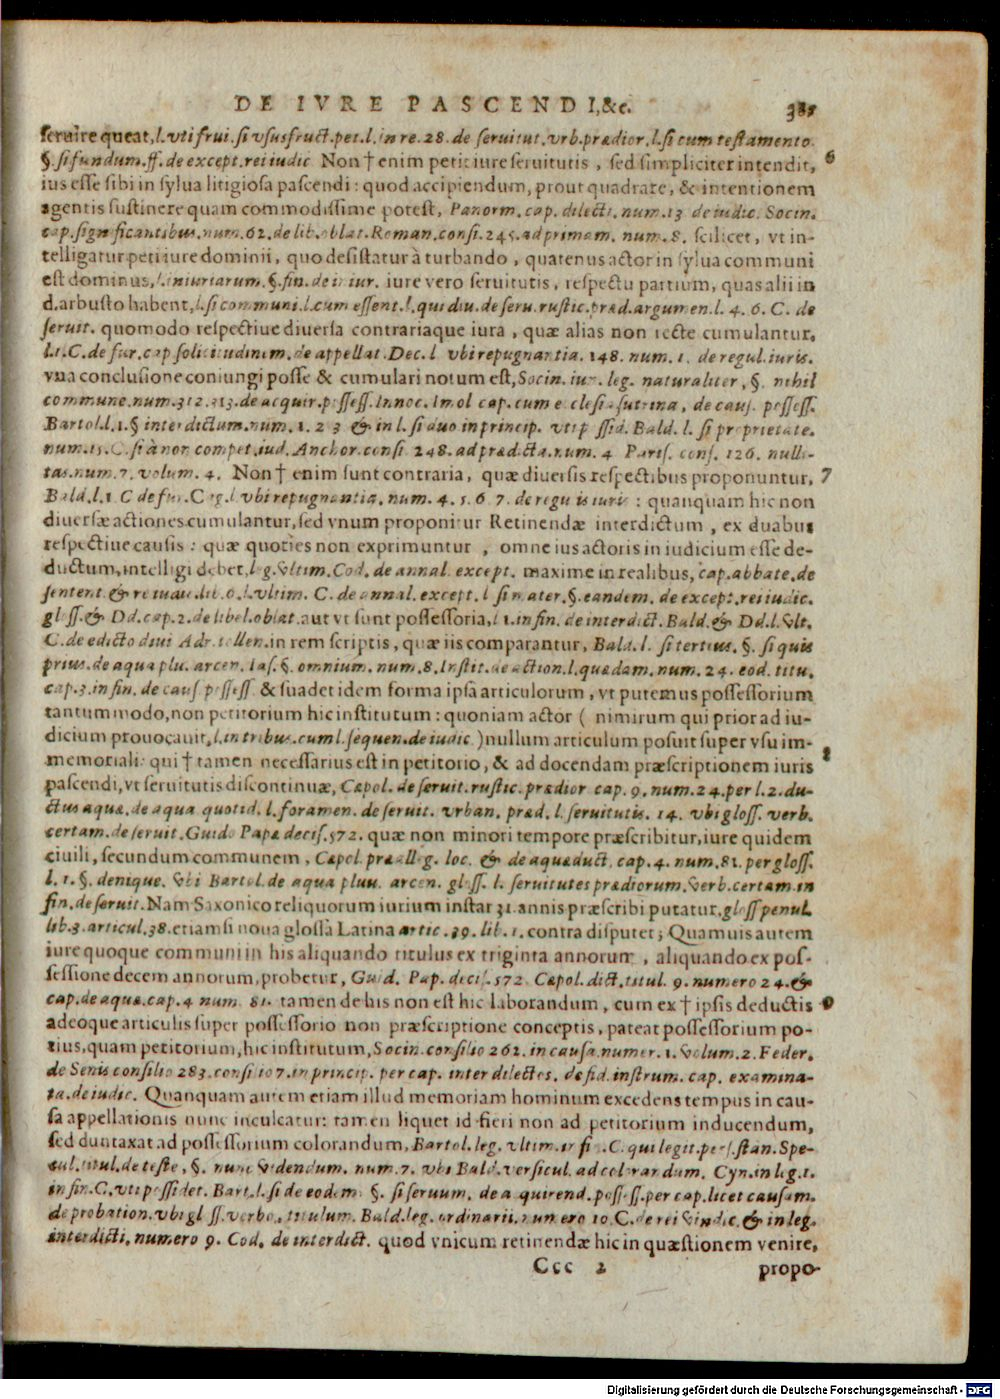 DE IVRE PASCENDI, &c. 385
seruire queat, l. vti frui. si vsusfruct. pet. l. in re. 28. de seruitut. vrb. prædior. l. si cum testamento.
§. si fundum. ff. de except. rei iudic. Non † enim petit iure seruitutis, sed simpliciter intendit, 6
ius esse sibi in sylua litigiosa pascendi: quod accipiendum, prout quadrare, & intentionem
agentis sustinere quam commodissime potest, Panorm. cap. dilecti. num. 13 de iudic. Socin.
cap. significantibus. num. 62. de lib. oblat. Roman. consi. 245. ad primam. num. 8. scilicet, vt in-
telligatur peti iure dominii, quo desistatur à turbando, quatenus actor in sylua communi
est dominus, l. iniuriarum. §. fin. de iniur. iure vero seruitutis, respectu partium, quas alii in
d. arbusto habent, l. si communi. l. cum essent. l. qui diu. de seru. rustic. præd. argum en. l. 4. 6. C. de
seruit. quomodo respectiue diuersa contrariaque iura, quæ alias non recte cumulantur,
l. 1. C. de fur. cap. solicitudinem. de appellat. Dec. l. vbi repugnantia. 148. num. 1. de regul. iuris.
vna conclusione coniungi posse & cumulari notum est, Socin. iun. leg. naturaliter, §. nihil
commune. num. 312. 313. de acquir. possess. Innoc. Imol cap. cum ecclesia sutrina, de caus. possess.
Bartol. l. 1. § interdictum. num. 1. 2 3 & in l. si duo in princip. vti possid. Bald. l. si proprietate.
num. 15. C. si à non compet. iud. Anchor. consi. 248. ad prædicta. num. 4 Paris. cons. 126. nulli-
tas. num. 7. volum. 4. Non † enim sunt contraria, quæ diuersis respectibus proponuntur, 7
Bald. l. 1. C de fur. Cag. l. vbi repugnantia, num. 4. 5. 6. 7. de regulis iuris: quanquam hic non
diuersæ actiones cumulantur, sed vnum proponitur Retinendæ interdictum, ex duabus
respectiue causis: quæ quoties non exprimuntur, omne ius actoris in iudicium esse de-
ductum, intelligi debet, leg. vltim. Cod. de annal. except. maxime in realibus, cap. abbate. de
sentent. & re iudi. lib. 6. l. vltim. C. de annal. except. l si mater. §. eandem. de except. rei iudic.
gloss. & Dd. cap. 2. de libel. oblat. aut vt sunt possessoria, l 1. in fin. de interdict. Bald. & Dd. l. vlt.
C. de edicto diui Adr. tollen. in rem scriptis, quæ iis comparantur, Bald. l. si tertius. §. si quis
prius. de aqua plu. arcen. Ias. §. omnium. num. 8. Instit. de action. l. quædam. num. 24. eod. titu.
cap. 3. in fin. de caus. possess. & suadet idem forma ipsa articulorum, vt putemus possessorium
tantummodo, non petitorium hic institutum: quoniam actor (nimirum qui prior ad iu-
dicium prouocauit, l. in tribus. cum l. sequen. de iudic.) nullum articulum posuit super vsu im-
memoriali: qui † tamen necessarius est in petitorio, & ad docendam præscriptionem iuris 8
pascendi, vt seruitutis discontinuæ, Cæpol. de seruit. rustic. prædior cap. 9. num. 24. per l. 2. du-
ctus aquæ, de aqua quotid. l. foramen. de seruit. vrban. præd. l. seruitutis. 14. vbi gloss. verb.
certam. de seruit. Guido Papæ decis. 572. quæ non minori tempore præscribitur, iure quidem
ciuili, secundum communem, Cæpol. præalleg. loc. & de aquæduct, cap. 4. num. 81. per gloss.
l. 1. §. denique. vbi Bartol. de aqua pluu. arcen. gloss. l. seruitutes prædiorum. verb. certam. in
fin. de seruit. Nam Saxonico reliquorum iurium instar 31. annis præscribi putatur, gloss penul.
lib. 3. articul. 38. etiamsi noua glossa Latina artic. 39. lib. 1. contra disputet; Quamuis autem
iure quoque communi in his aliquando titulus ex triginta annorum, aliquando ex pos-
sessione decem annorum, probetur, Guid. Pap. decis. 572. Cæpol. dict. titul. 9. numero 24. &
cap. de aquæ. cap. 4 num. 81. tamen de his non est hic laborandum, cum ex † ipsis deductis 9
adeoque articulis super possessorio non præscriptione conceptis, pateat possessorium po-
tius, quam petitorium, hic institutum, Socin. consilio 262. in causa. numer. 1. volum. 2. Feder.
de Senis consilio 283. consi 107. in princip. per cap. inter dilectos. de fid. instrum. cap. examina-
ta. de iudic. Quanquam autem etiam illud memoriam hominum excedens tempus in cau-
sa appellationis nunc inculcatur: tamen liquet id fieri non ad petitorium inducendum,
sed duntaxat ad possessorium colorandum, Bartol. leg. vltim. in fi. C. qui legit. pers. stan. Spe-
cul. titul. de teste, §. nunc videndum. num. 7. vbi Bald. versicul. ad colorandum. Cyn. in leg. 1.
in fin. C. vti possidet. Bart. l. si de eodem §. si seruum. de aquirend. possess. per cap. licet causam.
de probation. vbi gloss. verbo, titulum. Bald. leg. ordinarii. numero 10. C. de rei vindic. & in leg.
interdicti, numero 9. Cod. de interdict. quod vnicum retinendæ hic in quæstionem venire,
Ccc 2 propo-
Digitalisierung gefördert durch die Deutsche Forschungsgemeinschaft - DFG